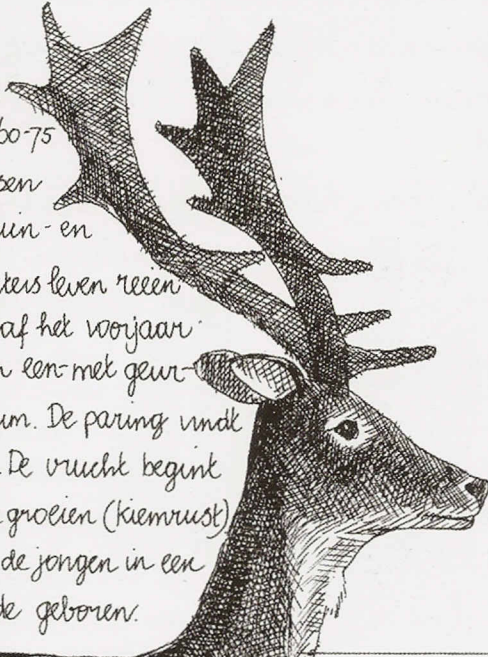 60-75
pen
uin- en
ters leven reeën
af het voorjaar
n een-met geur-
um. De paring vindt
. De vrucht begint
groeien (kiemrust)
de jongen in een
de geboren.